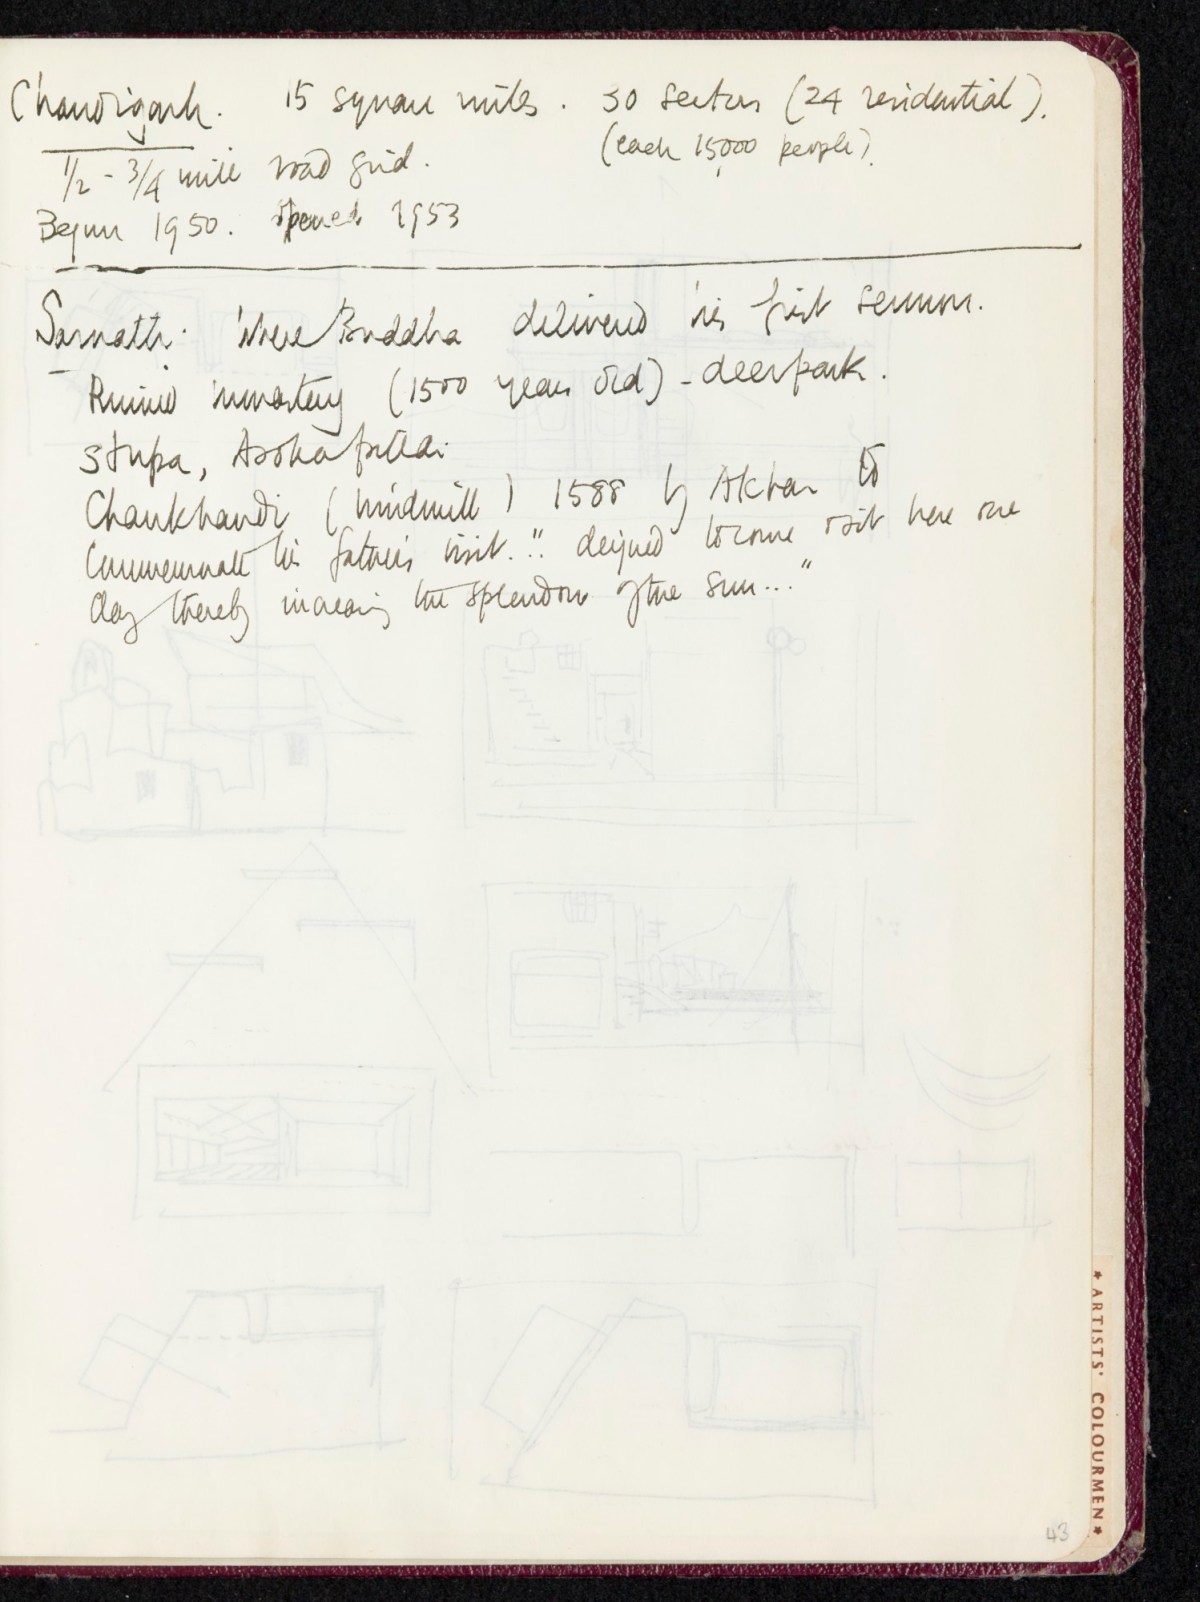 Chandigarh. 15 square miles. 30 sectors (24 residential).
(each 15000 people).
1/2 - 3/4 mile road grid.
Begun 1950. opened 1953
Sarnath: Where Buddha delivered his first sermon.
Ruined monastery (1500 years old) - deerpark.
Stupa, Asoka pillar.
Chaukhandi (windmill) 1588 by Akbar to
commemorate his father's visit. ".. deigned to come & sit here one
day thereby increasing the splendour of the sun..."
★ ARTISTS' COLOURMEN ★
43